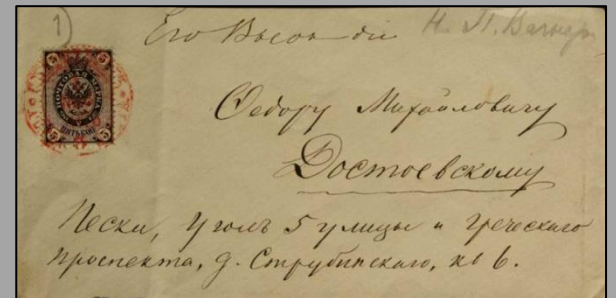 1)
Его Высок-дiю Н. П. Вагнер
ПОЧТОВАЯ МАРКА
5
Ѳедору Михайловичу
Достоевскому
Пески, уголъ 5 улицы и Греческаго
проспекта, д. Струбинскаго, кв 6.